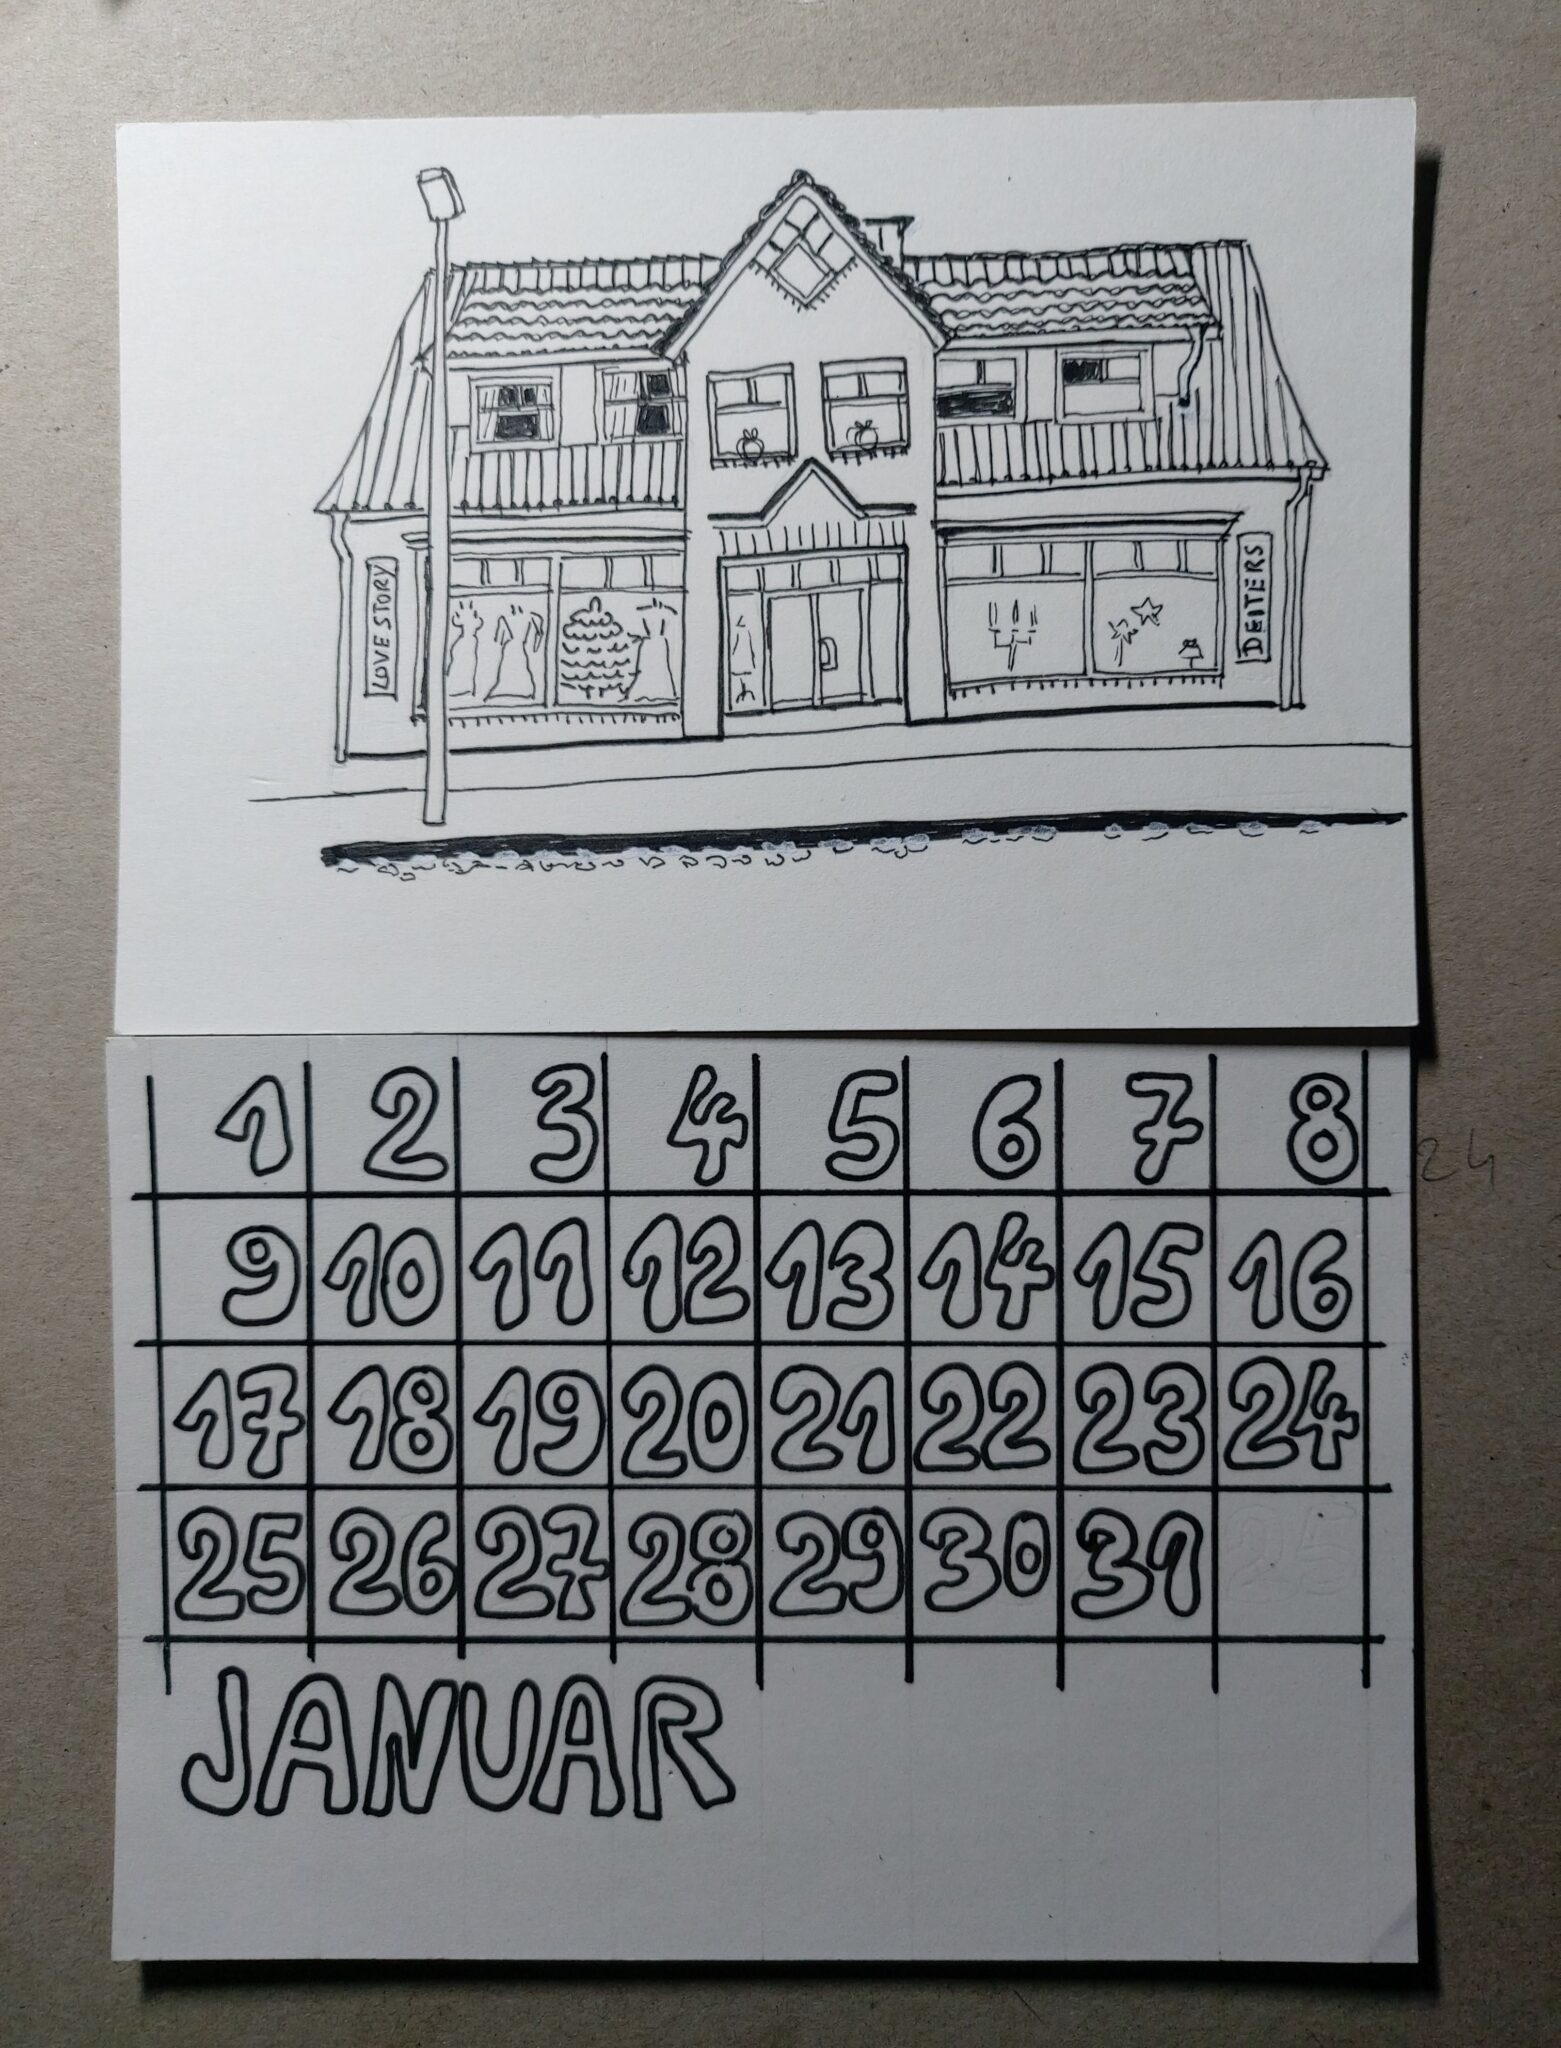 LOVE STORY
DEITERS
1 2 3 4 5 6 7 8
24
9 10 11 12 13 14 15 16
17 18 19 20 21 22 23 24
25 26 27 28 29 30 31 25
JANUAR